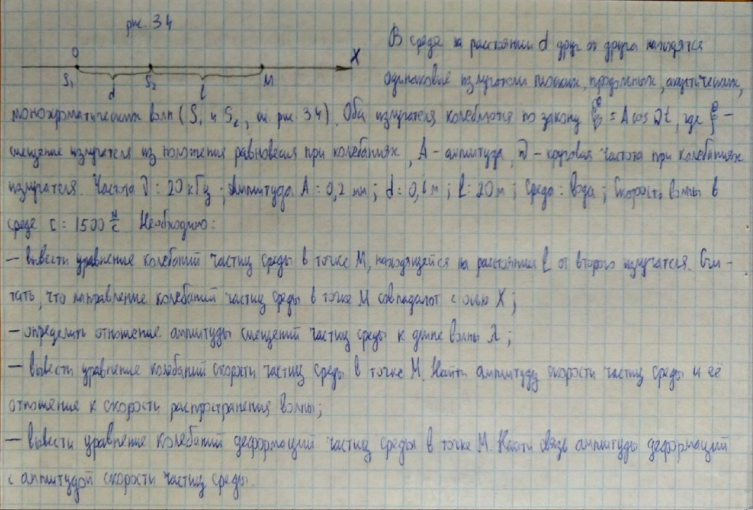 рис. 34
O X
S₁ S₂ M
d l
В среде на расстоянии d друг от друга находятся
одинаковые излучатели плоских, продольных, акустических,
монохроматических волн (S₁ и S₂, см. рис. 34). Оба излучателя колеблются по закону ξ = A cos Ωt, где ξ –
смещение излучателя из положения равновесия при колебаниях, A – амплитуда, Ω – круговая частота при колебаниях
излучателя. Частота ν = 20 кГц; амплитуда A = 0,2 мм; d = 0,6 м; l = 20 м; среда: вода; скорость волны в
среде c = 1500 м/с. Необходимо:
– вывести уравнение колебаний частиц среды в точке M, находящейся на расстоянии l от второго излучателя. Счи-
тать, что направление колебаний частиц среды в точке M совпадают с осью X;
– определить отношение амплитуды смещений частиц среды к длине волны λ;
– вывести уравнение колебаний скорости частиц среды в точке M. Найти амплитуду скорости частиц среды и её
отношение к скорости распространения волны;
– вывести уравнение колебаний деформаций частиц среды в точке M. Найти связь амплитуды деформаций
с амплитудой скорости частиц среды.